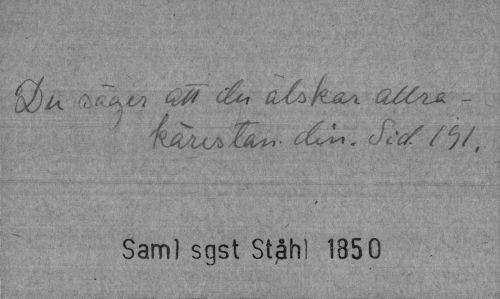 Du säger att du älskar allra-
käristan din. Sid. 191.
Saml sgst Ståhl 1850